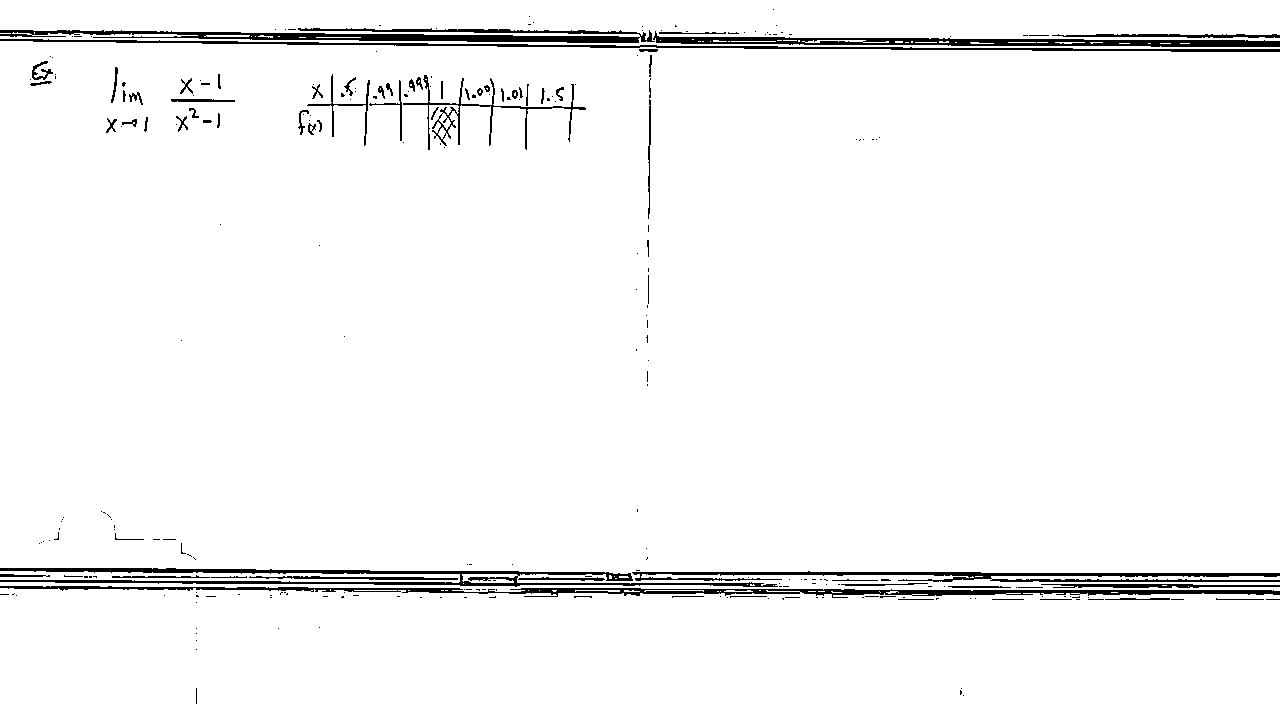 Ex.
lim x→1 x-1 / x²-1
x | .5 | .99 | .999 | 1 | 1.001 | 1.01 | 1.5 |
f(x)